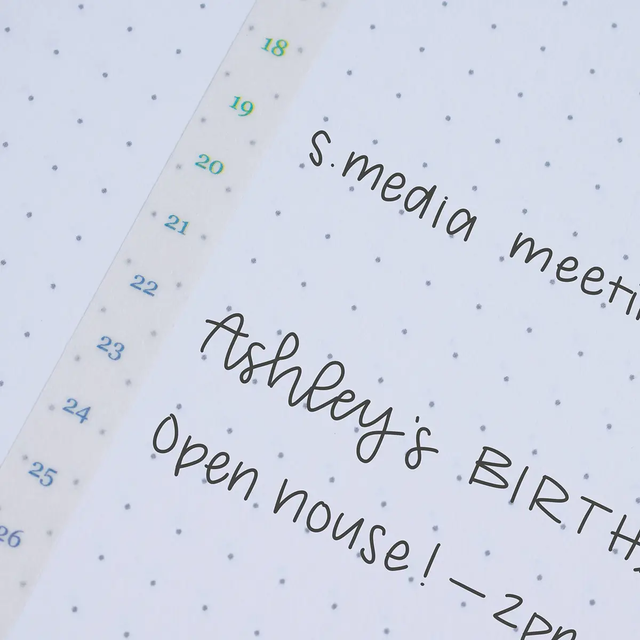 18
19 s.media meeti
20
21
22 Ashley's BIRTH
23
24 Open nouse! – 2pm
25
26